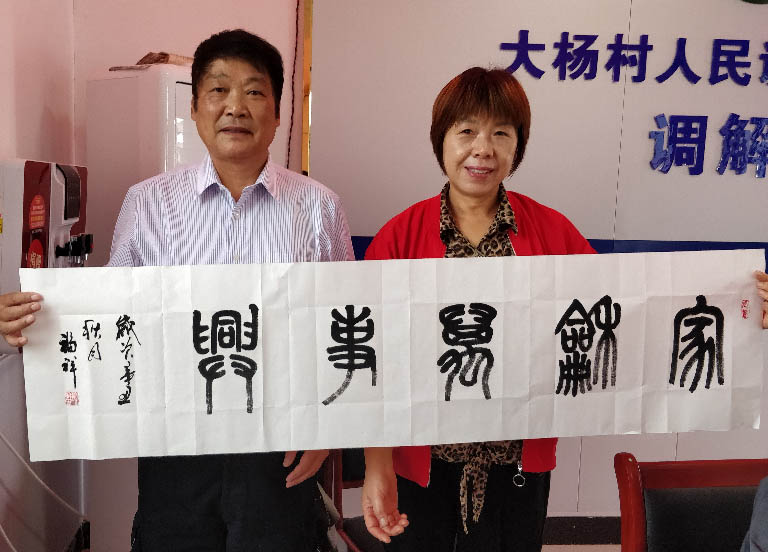 大杨村人民
调解
家龢萬事興
歲次辛丑
秋月
福祥